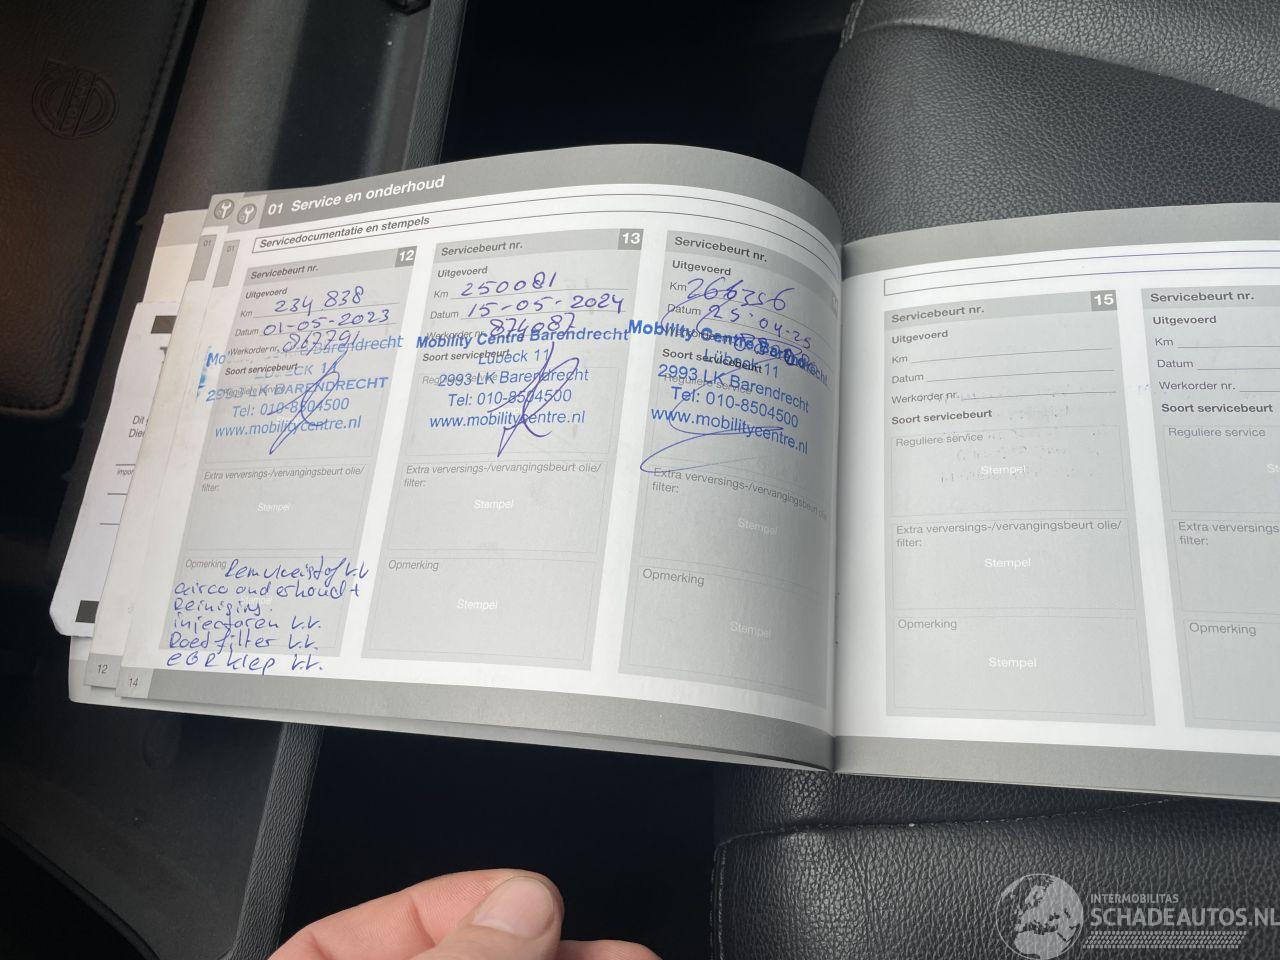 01 Service en onderhoud
Servicedocumentatie en stempels
01
01
Servicebeurt nr. 12
Uitgevoerd
Km 234 838
Datum 01-05-2023
Werkorder nr.
Barendrecht
Soort servicebeurt
2993 LK BARENDRECHT
Tel: 010-8504500
www.mobilitycentre.nl
Extra verversings-/vervangingsbeurt olie/
filter:
Stempel
Opmerking Remvloeistof v.v
airco onderhoud +
Reiniging.
injectoren v.v.
Roetfilter v.v.
EGR klep v.v.
12
14
Servicebeurt nr. 13
Uitgevoerd
Km 250081
Datum 15-05-2024
Werkorder nr. 874087
Mobility Centre Barendrecht
Soort servicebeurt
Lübeck 11
2993 LK Barendrecht
Tel: 010-8504500
www.mobilitycentre.nl
Extra verversings-/vervangingsbeurt olie/
filter:
Stempel
Opmerking
Stempel
Servicebeurt nr.
Uitgevoerd
Km 266356
Datum 25-04-25
Mobility Centre Barendrecht
Soort servicebeurt
Lübeck 11
2993 LK Barendrecht
Reguliere service
Tel: 010-8504500
www.mobilitycentre.nl
Extra verversings-/vervangingsbeurt olie
filter:
Stempel
Opmerking
Stempel
Servicebeurt nr. 15
Uitgevoerd
Km
Datum
Werkorder nr.
Soort servicebeurt
Reguliere service
Stempel
Extra verversings-/vervangingsbeurt olie/
filter:
Stempel
Opmerking
Stempel
Servicebeurt nr.
Uitgevoerd
Km
Datum
Werkorder nr.
Soort servicebeurt
Reguliere service
Extra verversings
filter:
Opmerking
INTERMOBILITAS
SCHADEAUTOS.NL